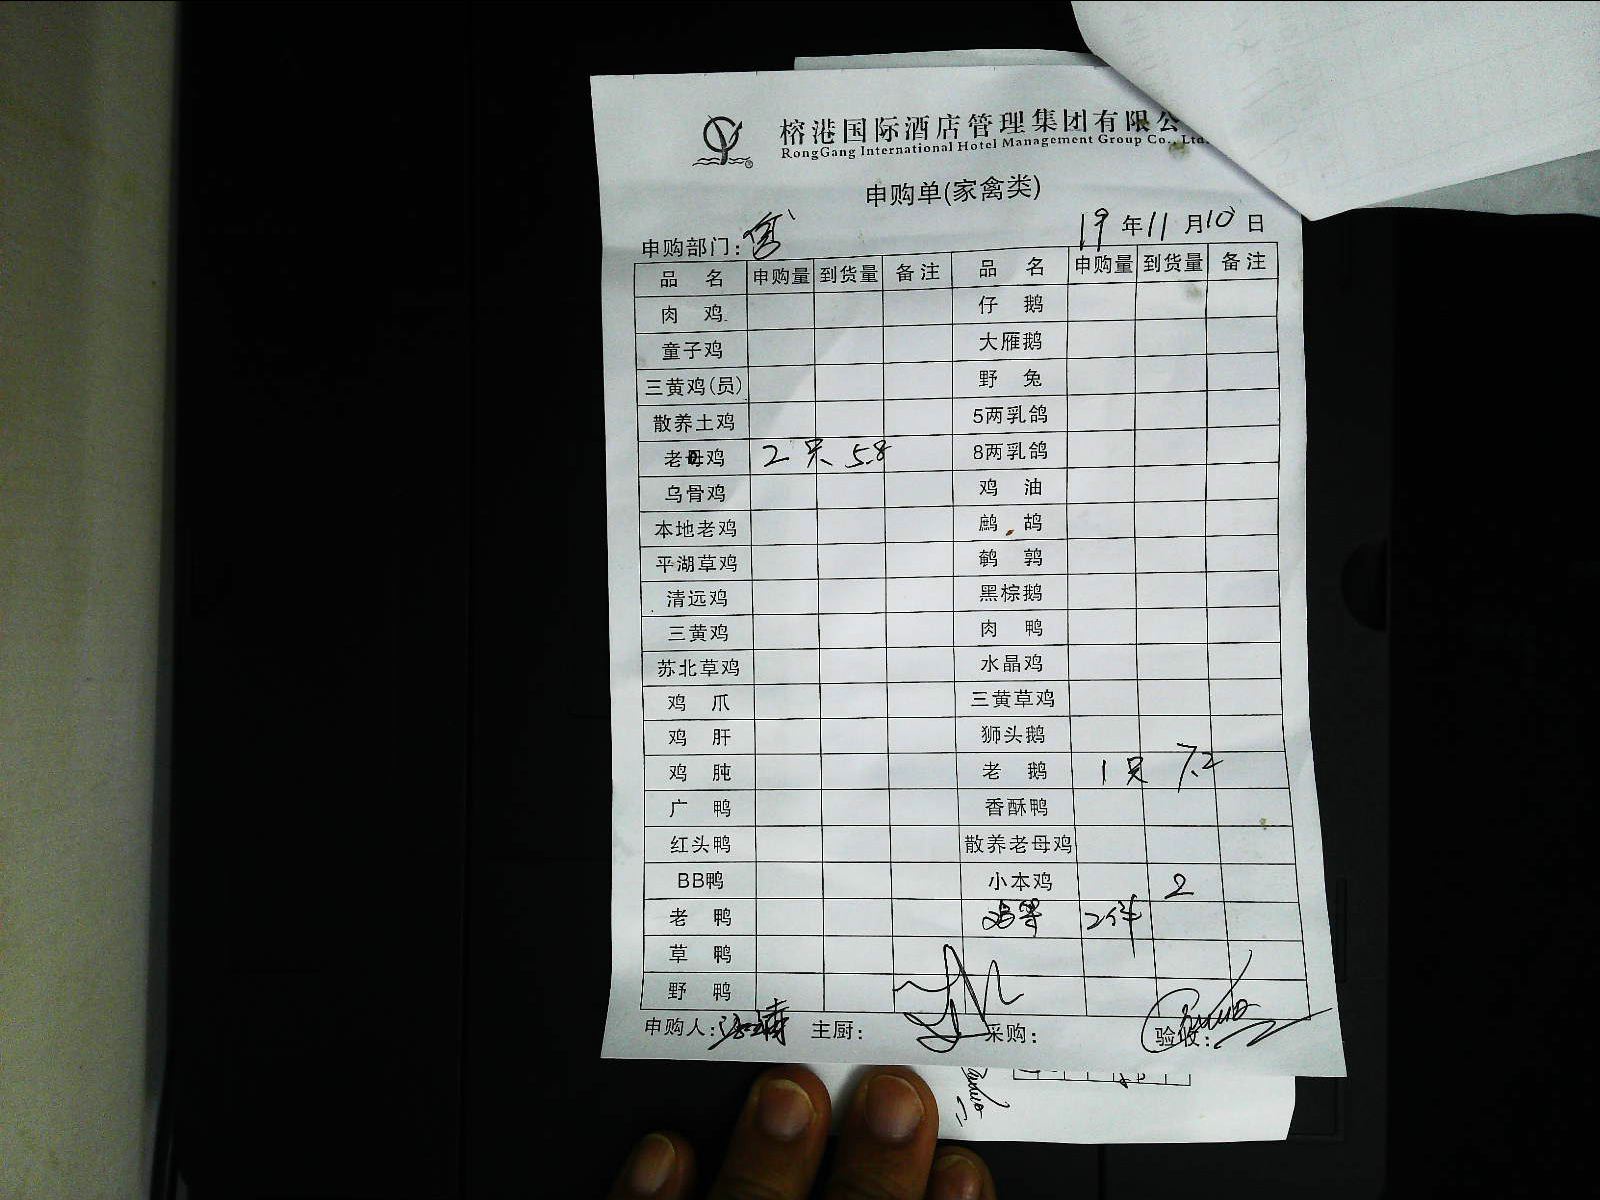 榕港国际酒店管理集团有限公
RongGang International Hotel Management Group Co., Ltd.
申购单(家禽类)
申购部门: 19 年 11 月 10 日
品 名 申购量 到货量 备注 品 名 申购量 到货量 备注
肉 鸡 仔 鹅
童子鸡 大雁鹅
三黄鸡(员) 野 兔
散养土鸡 5两乳鸽
老母鸡 2只 5.8 8两乳鸽
乌骨鸡 鸡 油
本地老鸡 鹧 鸪
平湖草鸡 鹌 鹑
清远鸡 黑棕鹅
三黄鸡 肉 鸭
苏北草鸡 水晶鸡
鸡 爪 三黄草鸡
鸡 肝 狮头鹅
鸡 肫 老 鹅 1只 7.2
广 鸭 香酥鸭
红头鸭 散养老母鸡
BB鸭 小本鸡 2
老 鸭 2件
草 鸭
野 鸭
申购人: 主厨: 采购: 验收: